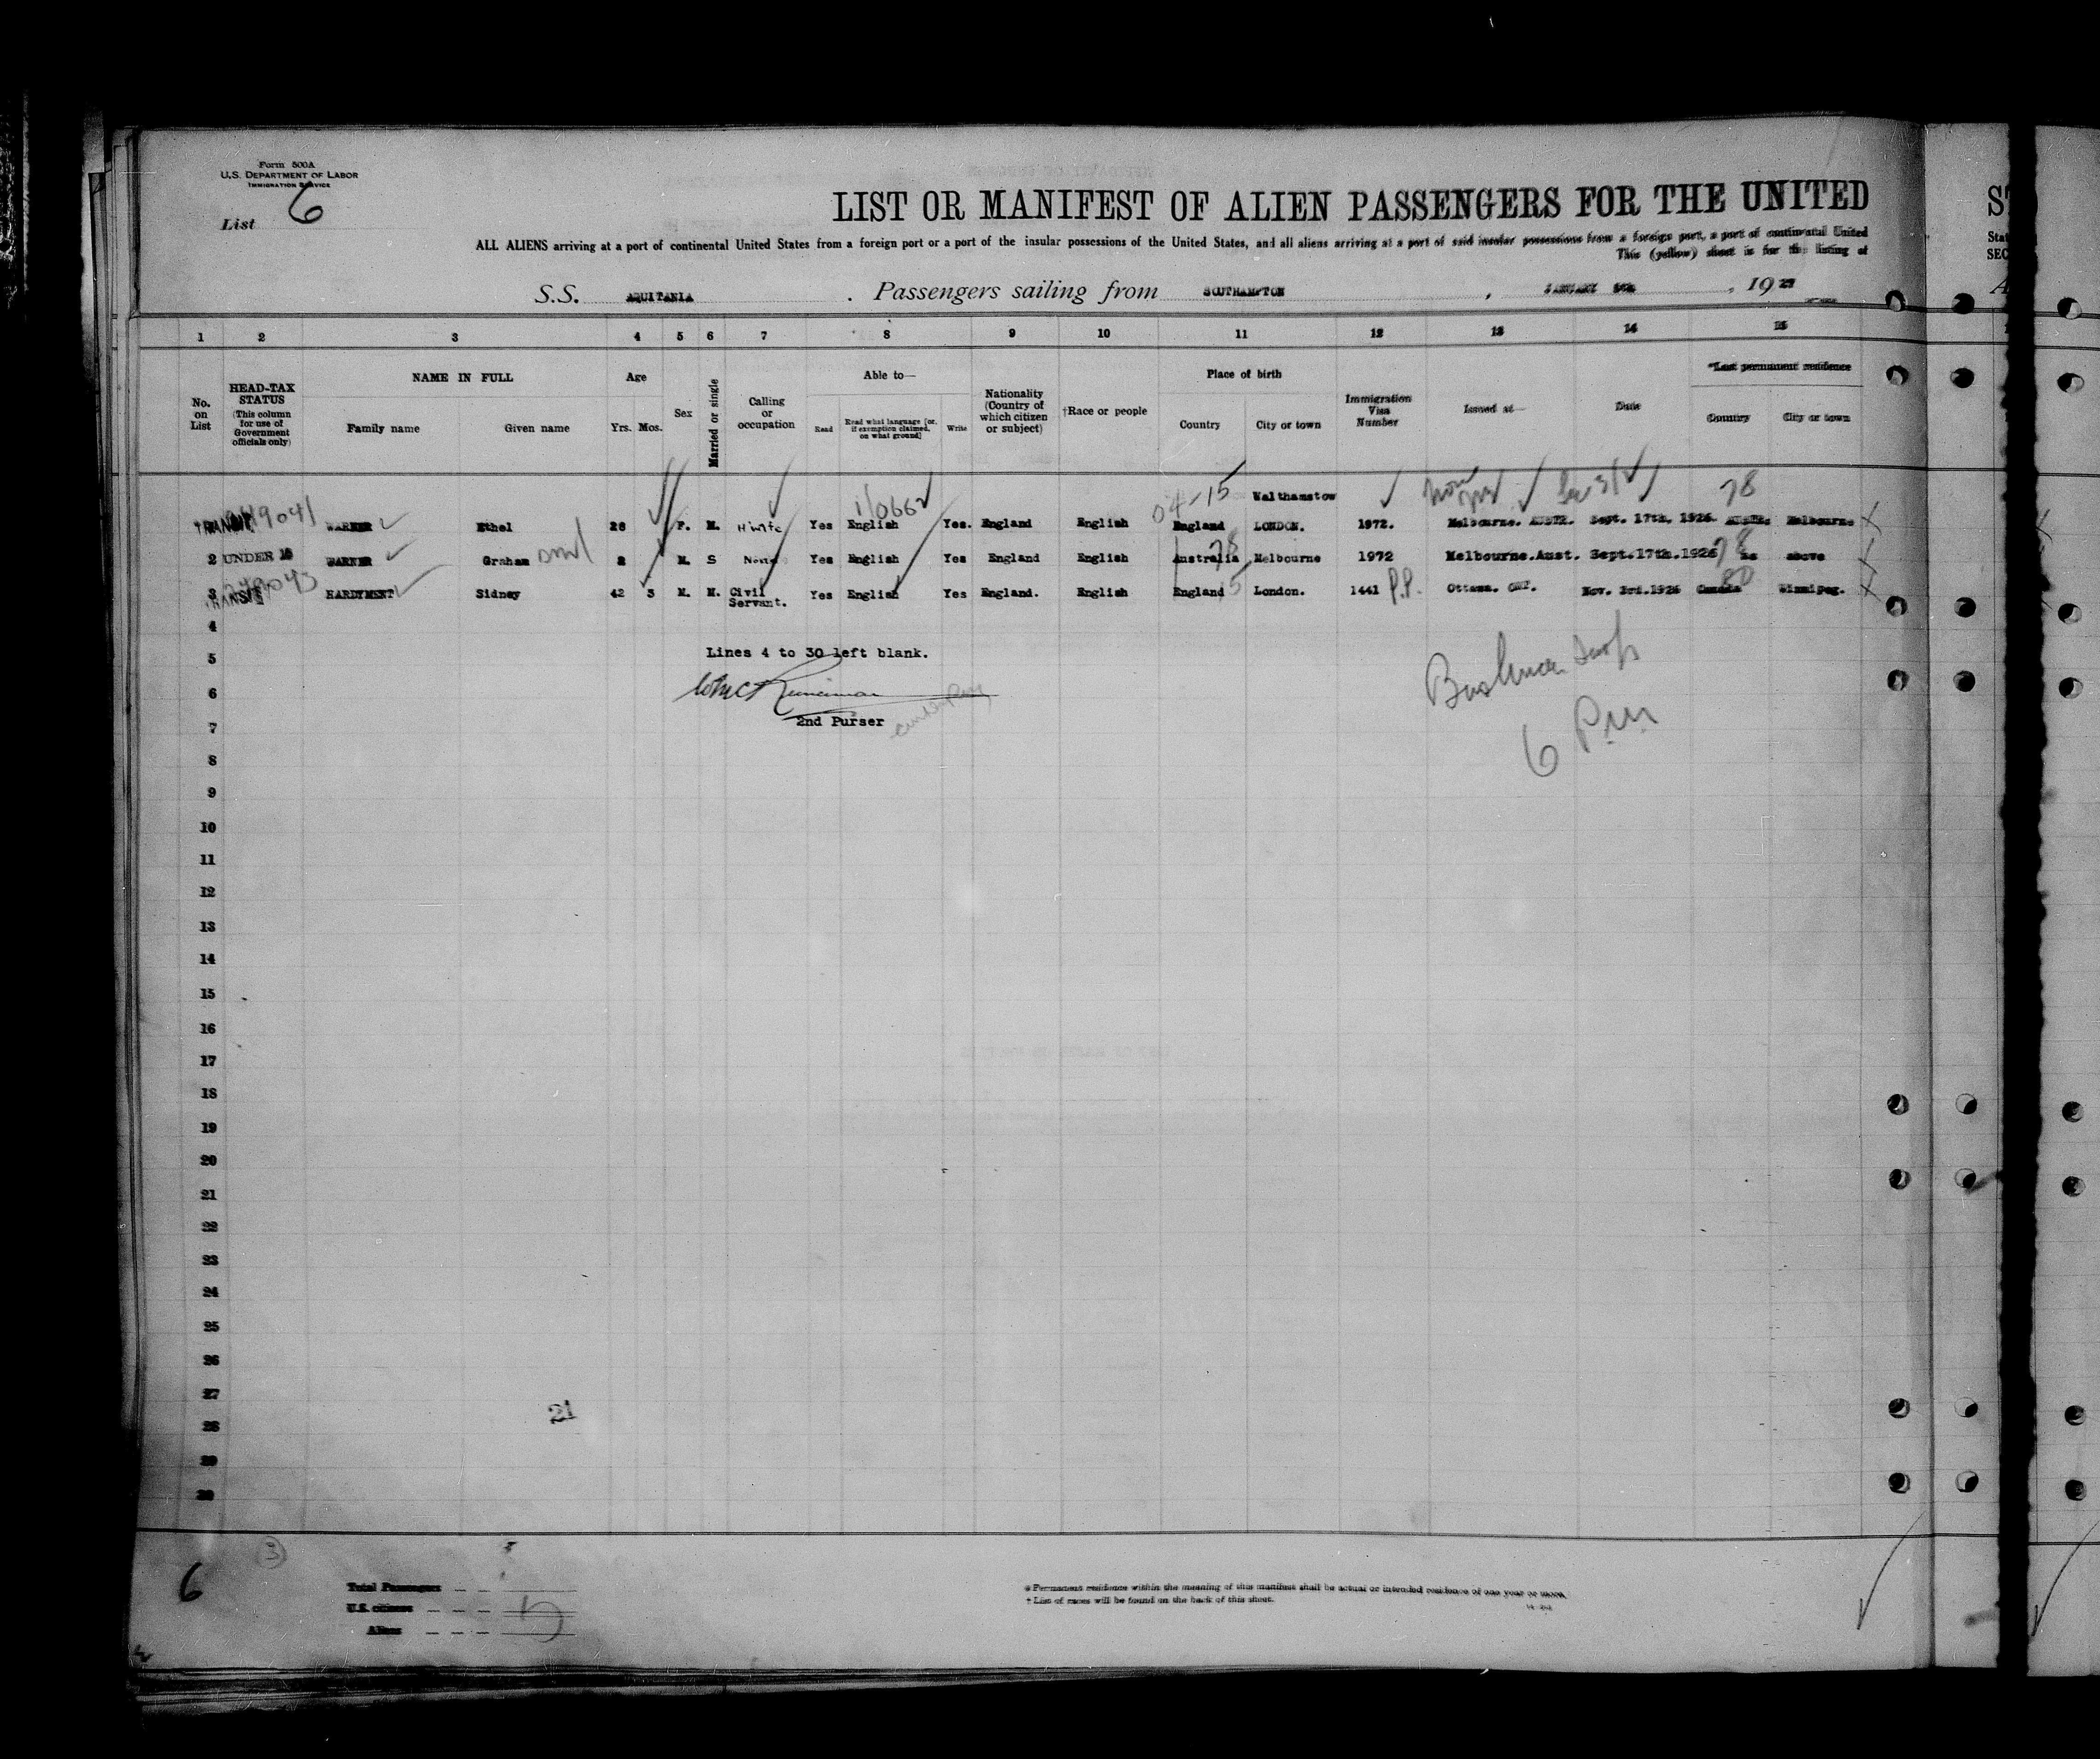 Form 500A
U.S. DEPARTMENT OF LABOR
IMMIGRATION SERVICE
List 6
LIST OR MANIFEST OF ALIEN PASSENGERS FOR THE UNITED
ALL ALIENS arriving at a port of continental United States from a foreign port or a port of the insular possessions of the United States, and all aliens arriving at a port of said insular possessions from a foreign port, a port of continental United
This (yellow) sheet is for the listing of
S.S. AQUITANIA . Passengers sailing from SOUTHAMPTON , JANUARY , 1927
1 2 3 4 5 6 7 8 9 10 11 12 13 14 15
No. on List
HEAD-TAX STATUS (This column for use of Government officials only)
NAME IN FULL
Family name Given name
Age
Yrs. Mos.
Sex
Married or single
Calling or occupation
Able to—
Read Read what language [or, if exemption claimed, on what ground] Write
Nationality (Country of which citizen or subject)
†Race or people
Place of birth
Country City or town
Immigration Visa Number
Issued at—
Date
*Last permanent residence
Country City or town
04-15 Walthamstow 78
TRANSIT WARNER Ethel 28 F. M. H'wife Yes English Yes. England English England LONDON. 1972. Melbourne. AUSTR. Sept. 17th. 1926. AUSTR. Melbourne
2 UNDER 16 WARNER Graham 2 M. S None Yes English Yes England English Australia Melbourne 1972 Melbourne.Aust. Sept.17th.1926 as above
3 TRANSIT HARDYMENT Sidney 42 3 M. M. Civil Servant. Yes English Yes England. English England London. 1441 P.P. Ottawa. ONT. Nov. 3rd.1926 Canada Winnipeg.
4
5 Lines 4 to 30 left blank.
6
7 2nd Purser
6 P.M
8
9
10
11
12
13
14
15
16
17
18
19
20
21
22
23
24
25
26
27
21
28
29
30
6 3
Total Passengers
U.S. citizens
Aliens
* Permanent residence within the meaning of this manifest shall be actual or intended residence of one year or more.
† List of races will be found on the back of this sheet.